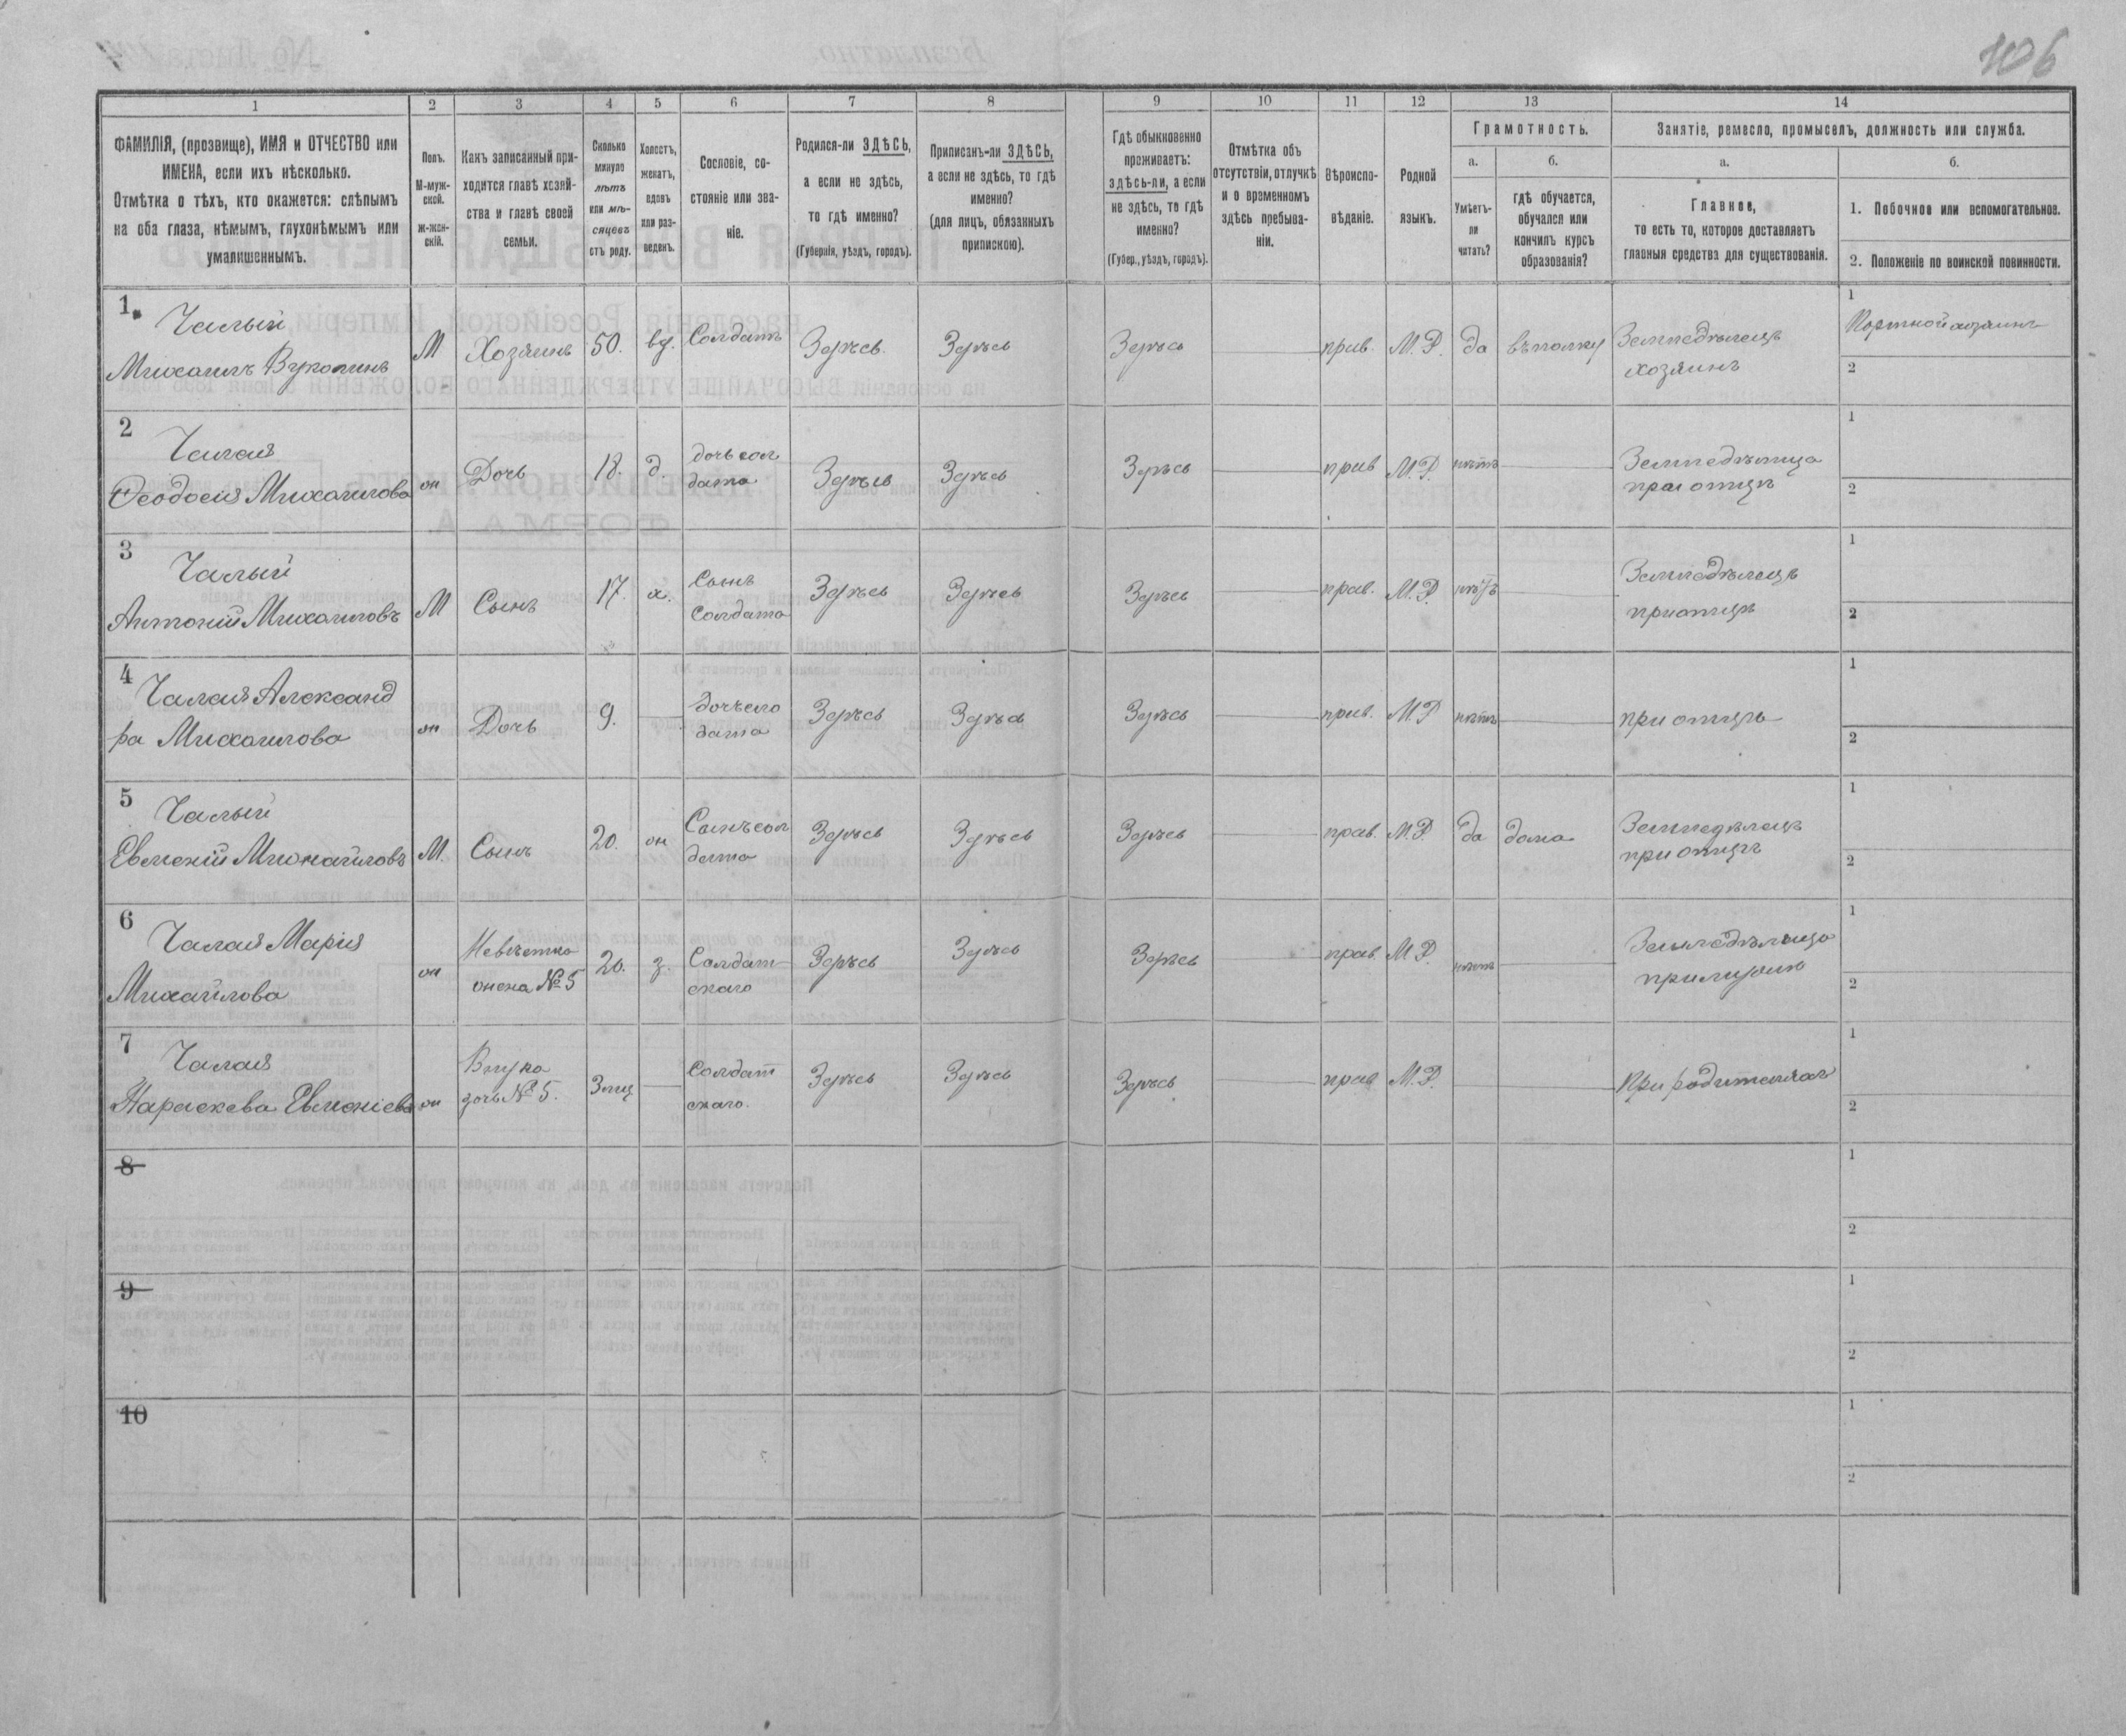 106
1 2 3 4 5 6 7 8 9 10 11 12 13 14
ФАМИЛІЯ, (прозвище), ИМЯ и ОТЧЕСТВО или
ИМЕНА, если ихъ нѣсколько.
Отмѣтка о тѣхъ, кто окажется: слѣпымъ
на оба глаза, нѣмымъ, глухонѣмымъ или
умалишеннымъ.
Полъ.
М-муж-
ской.
Ж-жен-
скій.
Какъ записанный при-
ходится главѣ хозяй-
ства и главѣ своей
семьи.
Сколько
минуло
лѣтъ
или мѣ-
сяцевъ
отъ роду.
Холостъ,
женатъ,
вдовъ
или раз-
веденъ.
Сословіе, со-
стояніе или зва-
ніе.
Родился-ли ЗДѢСЬ,
а если не здѣсь,
то гдѣ именно?
(Губернія, уѣздъ, городъ).
Приписанъ-ли ЗДѢСЬ,
а если не здѣсь, то гдѣ
именно?
(для лицъ, обязанныхъ
припискою).
Гдѣ обыкновенно
проживаетъ:
здѣсь-ли, а если
не здѣсь, то гдѣ
именно?
(Губер., уѣздъ, городъ).
Отмѣтка объ
отсутствіи, отлучкѣ
и о временномъ
здѣсь пребыва-
ніи.
Вѣроиспо-
вѣданіе.
Родной
языкъ.
Грамотность.
а.
Умѣетъ-
ли
читать?
б.
гдѣ обучается,
обучался или
кончилъ курсъ
образованія?
Занятіе, ремесло, промыселъ, должность или служба.
а.
Главное,
то есть то, которое доставляетъ
главныя средства для существованія.
б.
1. Побочное или вспомогательное.
2. Положеніе по воинской повинности.
1 Чалый
Михаилъ Вуколинъ М Хозяинъ 50. вд. Солдатъ Здѣсь Здѣсь Здѣсь прав. М.Р. да въ полку Земледѣлецъ
хозяинъ
1 Портной хозяинъ
2
2 Чалая
Ѳеодосія Михаилова Дочь 18. д. дочь сол
дата Здѣсь Здѣсь Здѣсь прав М.Р. нѣтъ Земледѣлица
при отцѣ
1
2
3 Чалый
Антоній Михаиловъ М Сынъ 17. х. Сынъ
Солдата Здѣсь Здѣсь Здѣсь прав. М.Р. нѣтъ Земледѣлецъ
при отцѣ
1
2
4 Чалая Александ
ра Михаилова Дочь 9. дочь сол
дата Здѣсь Здѣсь Здѣсь прав. М.Р нѣтъ при отцѣ
1
2
5 Чалый
Евменій Михайловъ М. Сынъ 20. Сынъ сол
дата Здѣсь Здѣсь Здѣсь прав. М.Р. да дома Земледѣлецъ
при отцѣ
1
2
6 Чалая Марія
Михайлова Невѣстка
жена № 5 20. з. Солдат
скаго Здѣсь Здѣсь Здѣсь прав. М.Р. нѣтъ Земледѣлица
при мужѣ
1
2
7 Чалая
Параскева Евменіева Внука
дочь № 5. 3 мц Солдат
скаго. Здѣсь Здѣсь Здѣсь прав М.Р. При родителяхъ
1
2
8
1
2
9
1
2
10
1
2